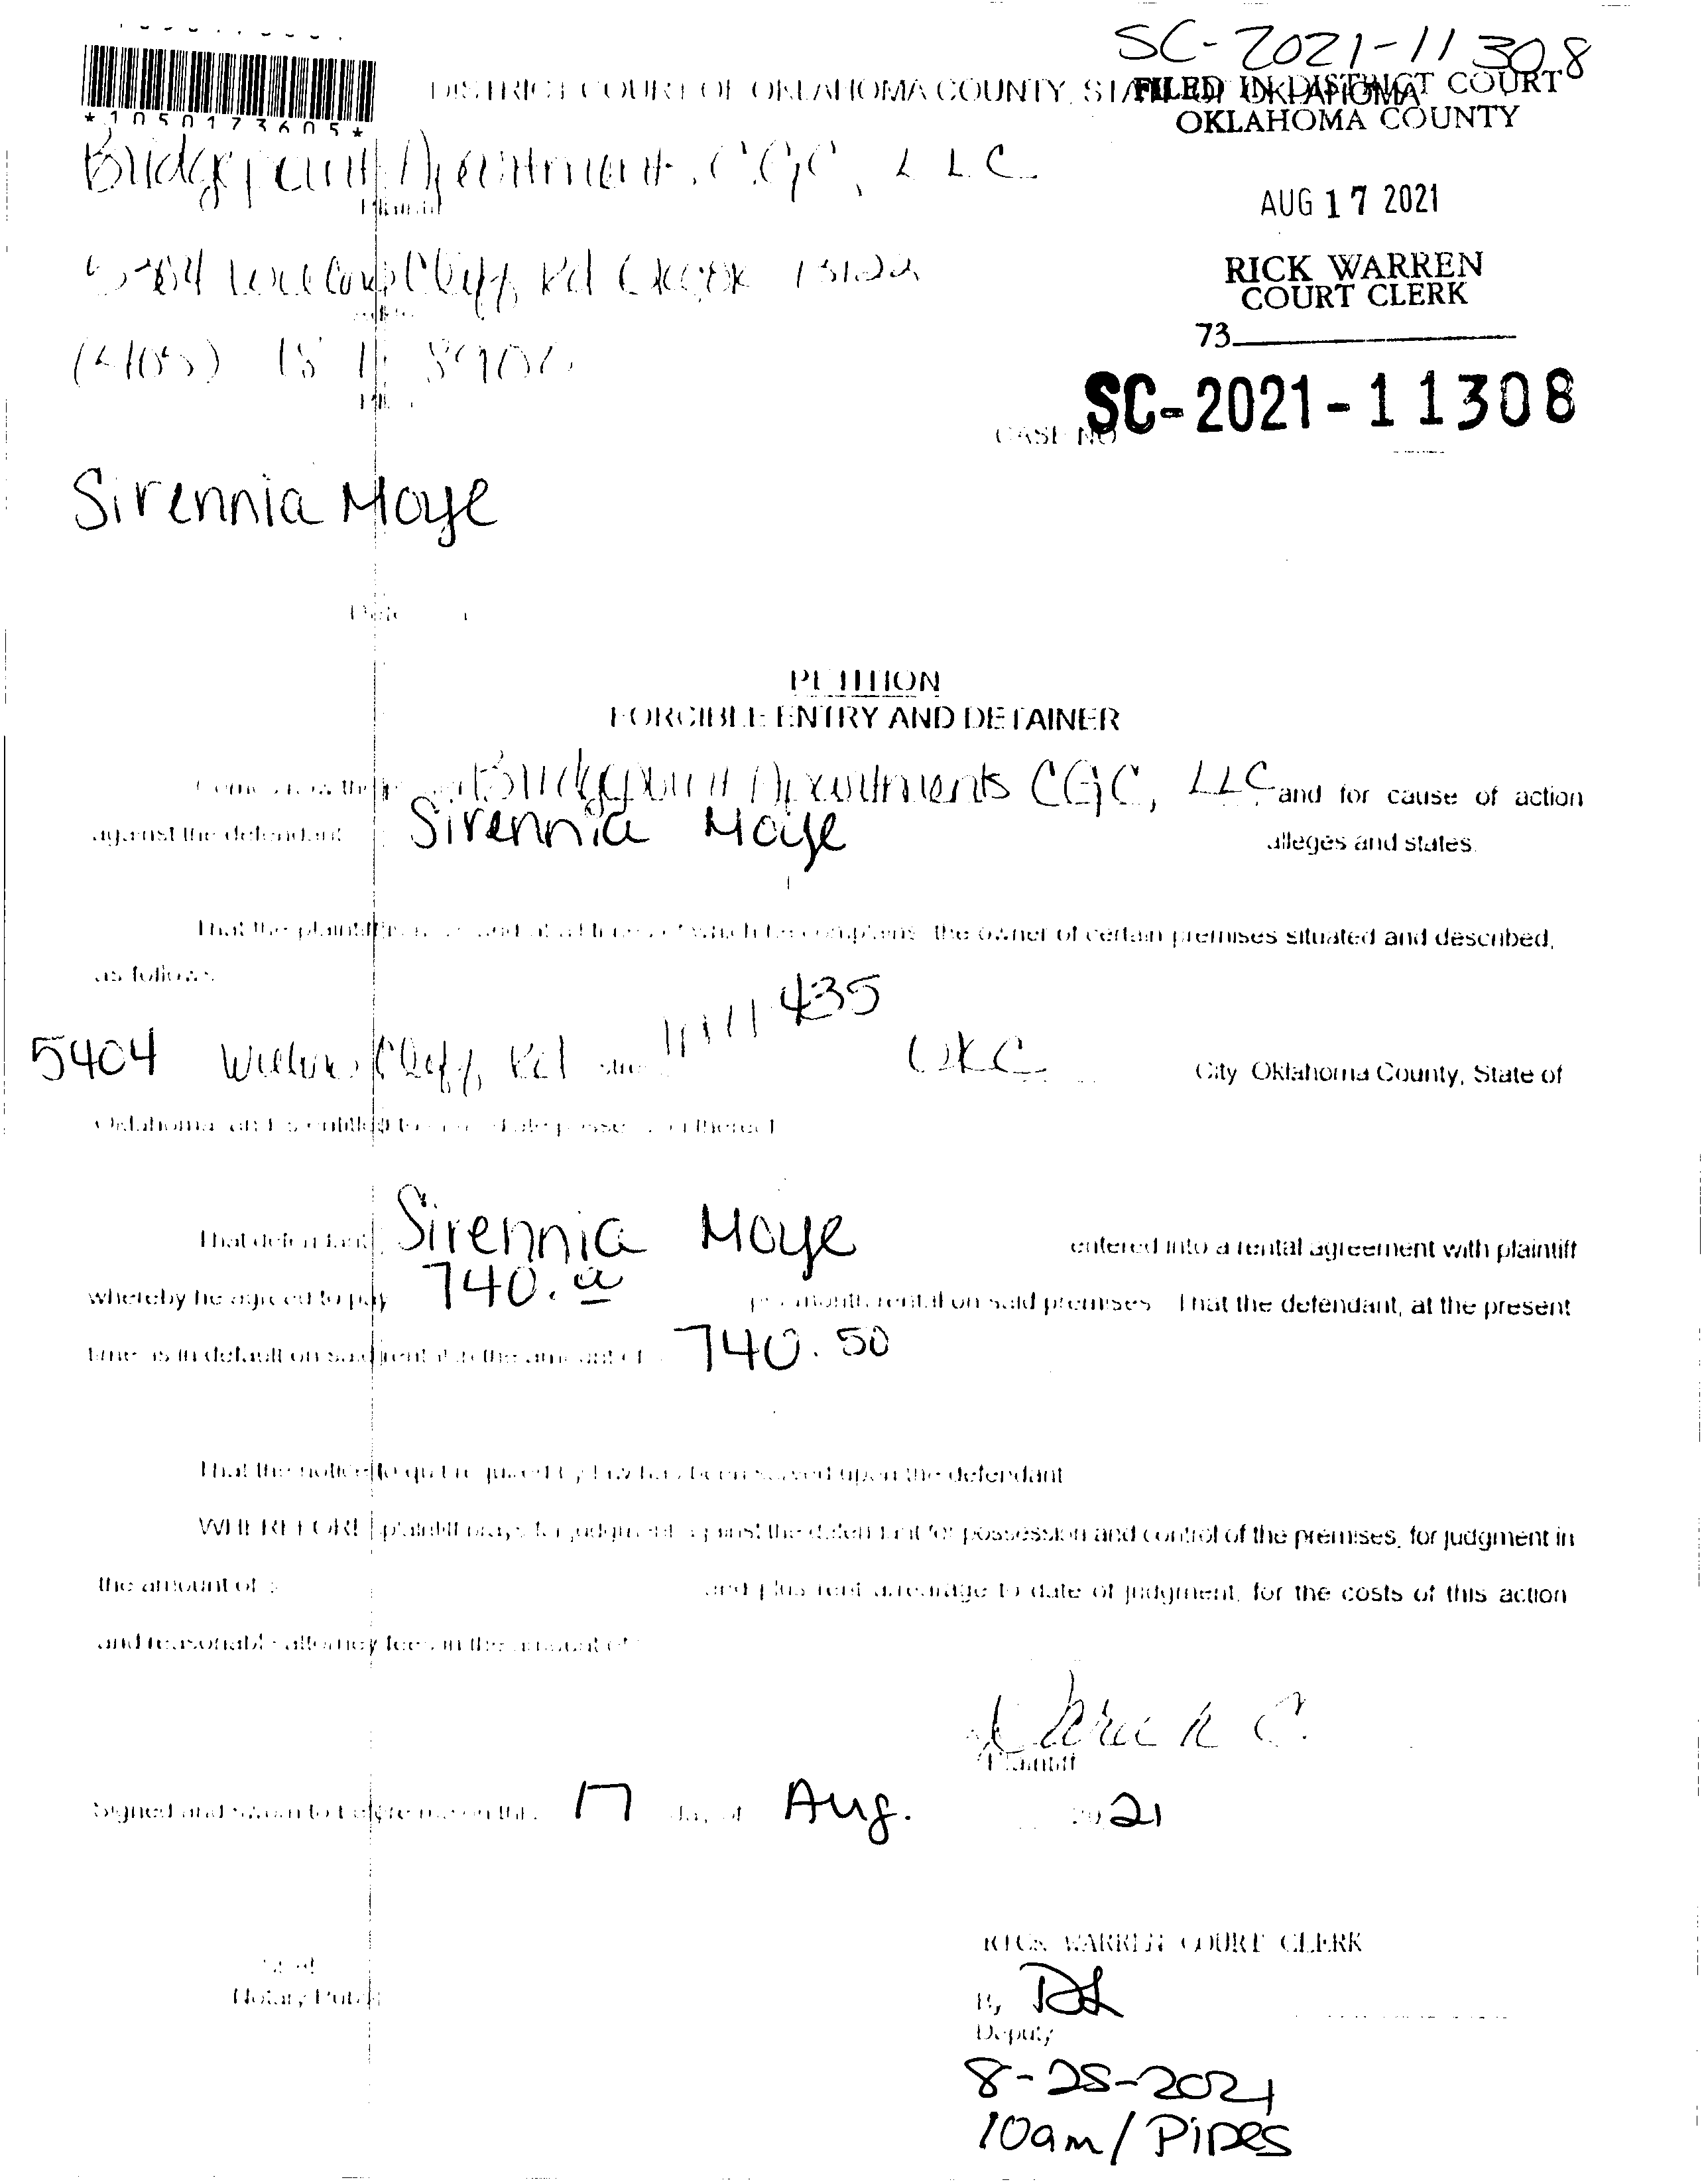 SC-2021-11308
DISTRICT COURT OF OKLAHOMA COUNTY, STATE OF OKLAHOMA
FILED IN DISTRICT COURT
OKLAHOMA COUNTY
*1050173605*
Bridgepoint Apartment, CGC, LLC
Plaintiff
AUG 17 2021
5404 Willow Cliff Rd OKC OK 73122
RICK WARREN
COURT CLERK
73
(405)
SC-2021-11308
CASE NO
Sirennia Moye
PETITION
FORCIBLE ENTRY AND DETAINER
Comes now the Bridgepoint Apartments CGC, LLC and for cause of action
against the defendant Sirennia Moye alleges and states.
That the plaintiff is now and at all times of which he complains, the owner of certain premises situated and described,
as follows
435
5404 Willow Cliff Rd OKC City Oklahoma County, State of
Oklahoma and is entitled to possession thereof
That defendant Sirennia Moye entered into a rental agreement with plaintiff
whereby he agreed to pay 740. per month rental on said premises That the defendant, at the present
time is in default on said rental in the amount of 740.50
That the notice to quit required by law has been served upon the defendant
WHEREFORE plaintiff prays for judgment against the defendant for possession and control of the premises, for judgment in
the amount of and plus rent arrearage to date of judgment, for the costs of this action
and reasonable attorney fees in the amount of
Plaintiff
Signed and sworn to before me on this 17 day of Aug. 2021
RICK WARREN COURT CLERK
Notary Public
By
Deputy
8-25-2021
10am/Pipes